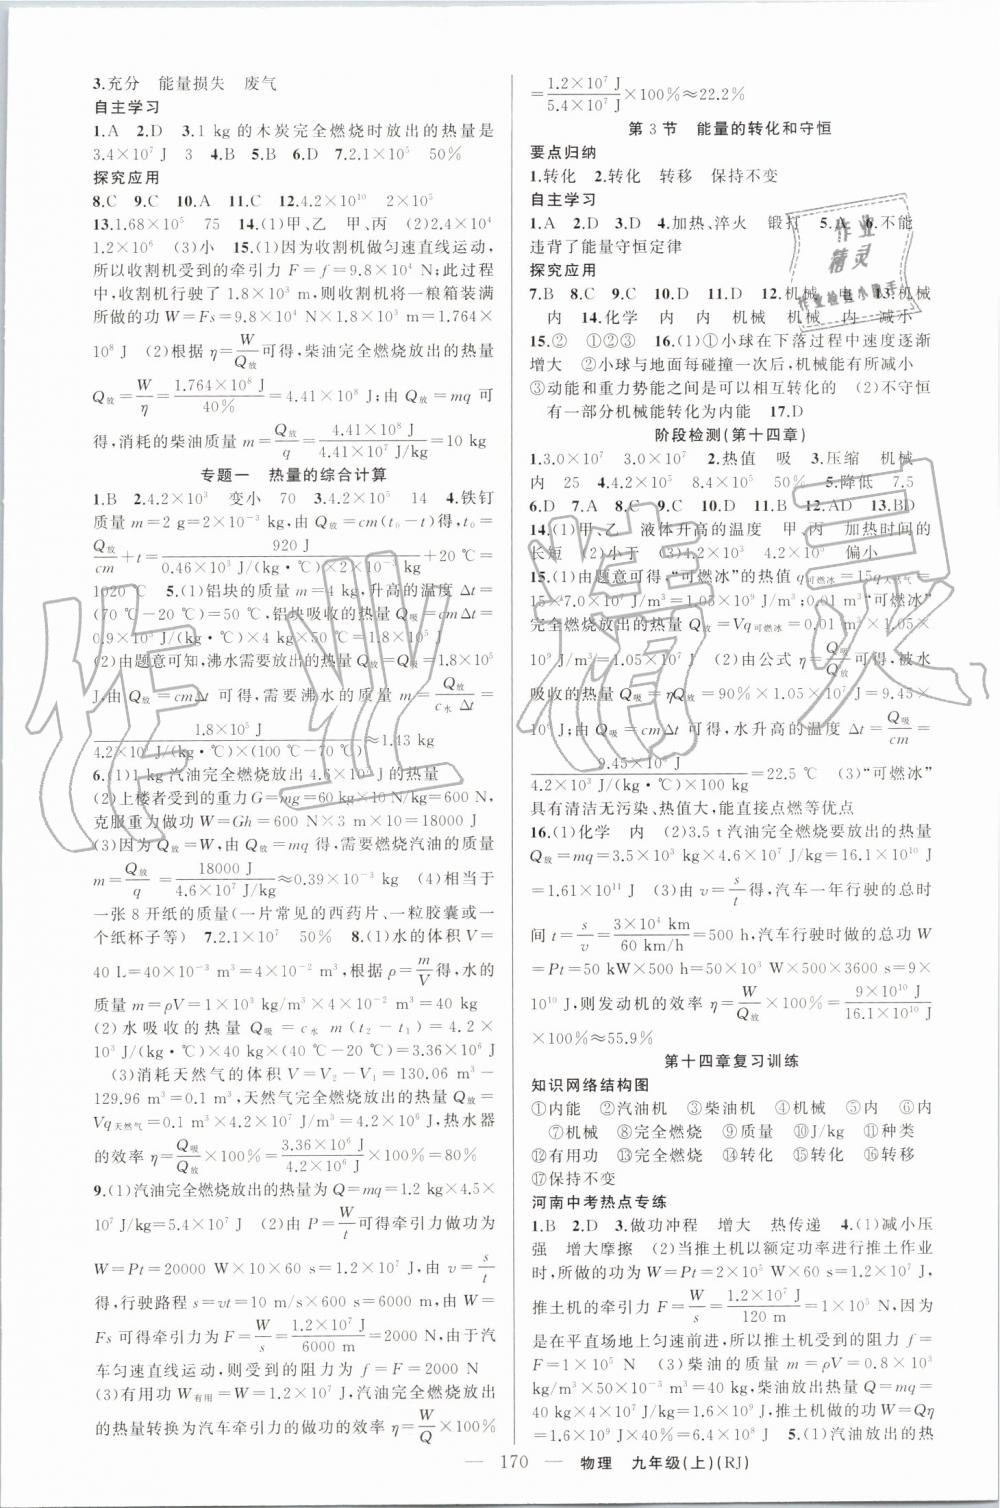 3.充分　能量损失　废气
自主学习
1.A　2.D　3.1 kg的木炭完全燃烧时放出的热量是
3.4×10⁷ J　3　4.B　5.B　6.D　7.2.1×10⁵　50%
探究应用
8.C　9.C　10.A　11.C　12.4.2×10¹⁰　2×10⁵
13.1.68×10⁵　75　14.(1)甲、乙　甲、丙　(2)2.1×10⁴
1.2×10⁶　(3)小　15.(1)因为收割机做匀速直线运动，
所以收割机受到的牵引力 F=f=9.8×10⁴ N;此过程
中,收割机行驶了 1.8×10³ m,则收割机将一粮箱装满
所做的功 W=Fs=9.8×10⁴ N×1.8×10³ m=1.764×
10⁸ J　(2)根据 η=W/Q放 可得,柴油完全燃烧放出的热量
Q放=W/η=1.764×10⁸ J/40%=4.41×10⁸ J;由 Q放=mq 可
得,消耗的柴油质量 m=Q放/q=4.41×10⁸ J/4.41×10⁷ J/kg=10 kg
专题一　热量的综合计算
1.B　2.4.2×10³　变小　70　3.4.2×10⁵　14　4.铁钉
质量 m=2 g=2×10⁻³ kg,由 Q放=cm(t₀-t)得,t₀=
Q放/cm+t=920 J/0.46×10³ J/(kg·℃)×2×10⁻³ kg+20 ℃=
1020 ℃　5.(1)铝块的质量 m=4 kg,升高的温度 Δt=
(70 ℃-20 ℃)=50 ℃,铝块吸收的热量 Q吸=cmΔt=
0.9×10³ J/(kg·℃)×4 kg×50 ℃=1.8×10⁵ J
(2)由题意可知,沸水需要放出的热量 Q放=Q吸=1.8×10⁵
J,由 Q放=cmΔt 可得,需要沸水的质量 m=Q放/c水Δt=
1.8×10⁵ J/4.2×10³ J/(kg·℃)×(100 ℃-70 ℃)≈1.43 kg
6.(1)1 kg 汽油完全燃烧放出 4.6×10⁷ J的热量
(2)上楼者受到的重力 G=mg=60 kg×10 N/kg=600 N,
克服重力做功 W=Gh=600 N×3 m×10=18000 J
(3)因为 Q放=W,由 Q放=mq 得,需要燃烧汽油的质量
m=Q放/q=18000 J/4.6×10⁷ J/kg≈0.39×10⁻³ kg　(4)相当于
一张 8 开纸的质量(一片常见的西药片、一粒胶囊或一
个纸杯子等)　7.2.1×10⁷　50%　8.(1)水的体积 V=
40 L=40×10⁻³ m³=4×10⁻² m³,根据 ρ=m/V 得,水的
质量 m=ρV=1×10³ kg/m³×4×10⁻² m³=40 kg
(2)水吸收的热量 Q吸=c水 m(t₂-t₁)=4.2×
10³ J/(kg·℃)×40 kg×20 ℃=3.36×10⁶ J
(3)消耗天然气的体积 V=V₂-V₁=130.06 m³-
129.96 m³=0.1 m³,天然气完全燃烧放出的热量 Q放=
Vq天然气=0.1 m³×4.2×10⁷ J/m³=4.2×10⁶ J,热水器
的效率 η=Q吸/Q放×100%=3.36×10⁶ J/4.2×10⁶ J×100%=80%
9.(1)汽油完全燃烧放出的热量为 Q=mq=1.2 kg×4.5×
10⁷ J/kg=5.4×10⁷ J　(2)由 P=W/t可得牵引力做功为
W=Pt=20000 W×10×60 s=1.2×10⁷ J,由 v=s/t
得,行驶路程 s=vt=10 m/s×600 s=6000 m,由 W=
Fs 可得牵引力为 F=W/s=1.2×10⁷ J/6000 m=2000 N,由于汽
车匀速直线运动,则受到的阻力为 f=F=2000 N
(3)有用功 W有用=W=1.2×10⁷ J,汽油完全燃烧放出
的热量转换为汽车牵引力的做功的效率 η=W/Q×100%
=1.2×10⁷ J/5.4×10⁷ J×100%≈22.2%
第 3 节　能量的转化和守恒
要点归纳
1.转化　2.转化　转移　保持不变
自主学习
1.A　2.D　3.D　4.加热、淬火　锻打　5.A　6.不能
违背了能量守恒定律
探究应用
7.B　8.C　9.C　10.D　11.D　12.机械　电　13.机械
内　14.化学　内　内　机械　机械　内　减小
15.②　②　③　16.(1)①小球在下落过程中速度逐渐
增大　②小球与地面每碰撞一次后,机械能有所减小
③动能和重力势能之间是可以相互转化的　(2)不守恒
有一部分机械能转化为内能　17.D
阶段检测(第十四章)
1.3.0×10⁷　3.0×10⁷　2.热值　吸　3.压缩　机械
内　25　4.4.2×10⁵　8.4×10⁵　50%　5.降低　7.5
6.D　7.A　8.C　9.C　10.D　11.B　12.AD　13.BD
14.(1)甲、乙　液体升高的温度　甲、丙　加热时间的
长短　(2)小于　(3)4.2×10³　4.2×10⁹　偏小
15.(1)由题意可得,“可燃冰”的热值 q可燃冰=15q天然气=
15×7.0×10⁷ J/m³=1.05×10⁹ J/m³;0.01 m³“可燃冰”
完全燃烧放出的热量 Q放=Vq可燃冰=0.01 m³×1.05×
10⁹ J/m³=1.05×10⁷ J　(2)由公式 η=Q吸/Q放可得,被水
吸收的热量 Q吸=ηQ放=90%×1.05×10⁷ J=9.45×
10⁶ J;由 Q吸=cmΔt 可得,水升高的温度 Δt=Q吸/cm=
9.45×10⁶ J/4.2×10³ J/(kg·℃)×100 kg=22.5 ℃　(3)“可燃冰”
具有清洁无污染、热值大,能直接点燃等优点
16.(1)化学　内　(2)3.5 t汽油完全燃烧要放出的热量
Q放=mq=3.5×10³ kg×4.6×10⁷ J/kg=16.1×10¹⁰ J
=1.61×10¹¹ J　(3)由 v=s/t得,汽车一年行驶的总时
间 t=s/v=3×10⁴ km/60 km/h=500 h,汽车行驶时做的总功 W
=Pt=50 kW×500 h=50×10³ W×500×3600 s=9×
10¹⁰ J,则发动机的效率 η=W/Q放×100%=9×10¹⁰ J/16.1×10¹⁰ J
×100%≈55.9%
第十四章复习训练
知识网络结构图
①内能　②汽油机　③柴油机　④机械　⑤内　⑥内
⑦机械　⑧完全燃烧　⑨质量　⑩J/kg　⑪种类
⑫有用功　⑬完全燃烧　⑭转化　⑮转化　⑯转移
⑰保持不变
河南中考热点专练
1.B　2.D　3.做功冲程　增大　热传递　4.(1)减小压
强　增大摩擦　(2)当推土机以额定功率进行推土作业
时,所做的功为 W=Pt=2×10⁵ W×60 s=1.2×10⁷ J,
推土机的牵引力 F=W/s=1.2×10⁷ J/120 m=1×10⁵ N,因为
是在平直场地上匀速前进,所以推土机受到的阻力 f=
F=1×10⁵ N　(3)柴油的质量 m=ρV=0.8×10³
kg/m³×50×10⁻³ m³=40 kg,柴油放出的热量 Q=mq=
40 kg×4×10⁷ J/kg=1.6×10⁹ J,柴油机做的功 W=Qη
=1.6×10⁹ J×40%=6.4×10⁸ J　5.(1)此时太阳能热
— 170 —　物理　九年级(上)(RJ)
作业精灵
作业
精灵
作业检查小助手